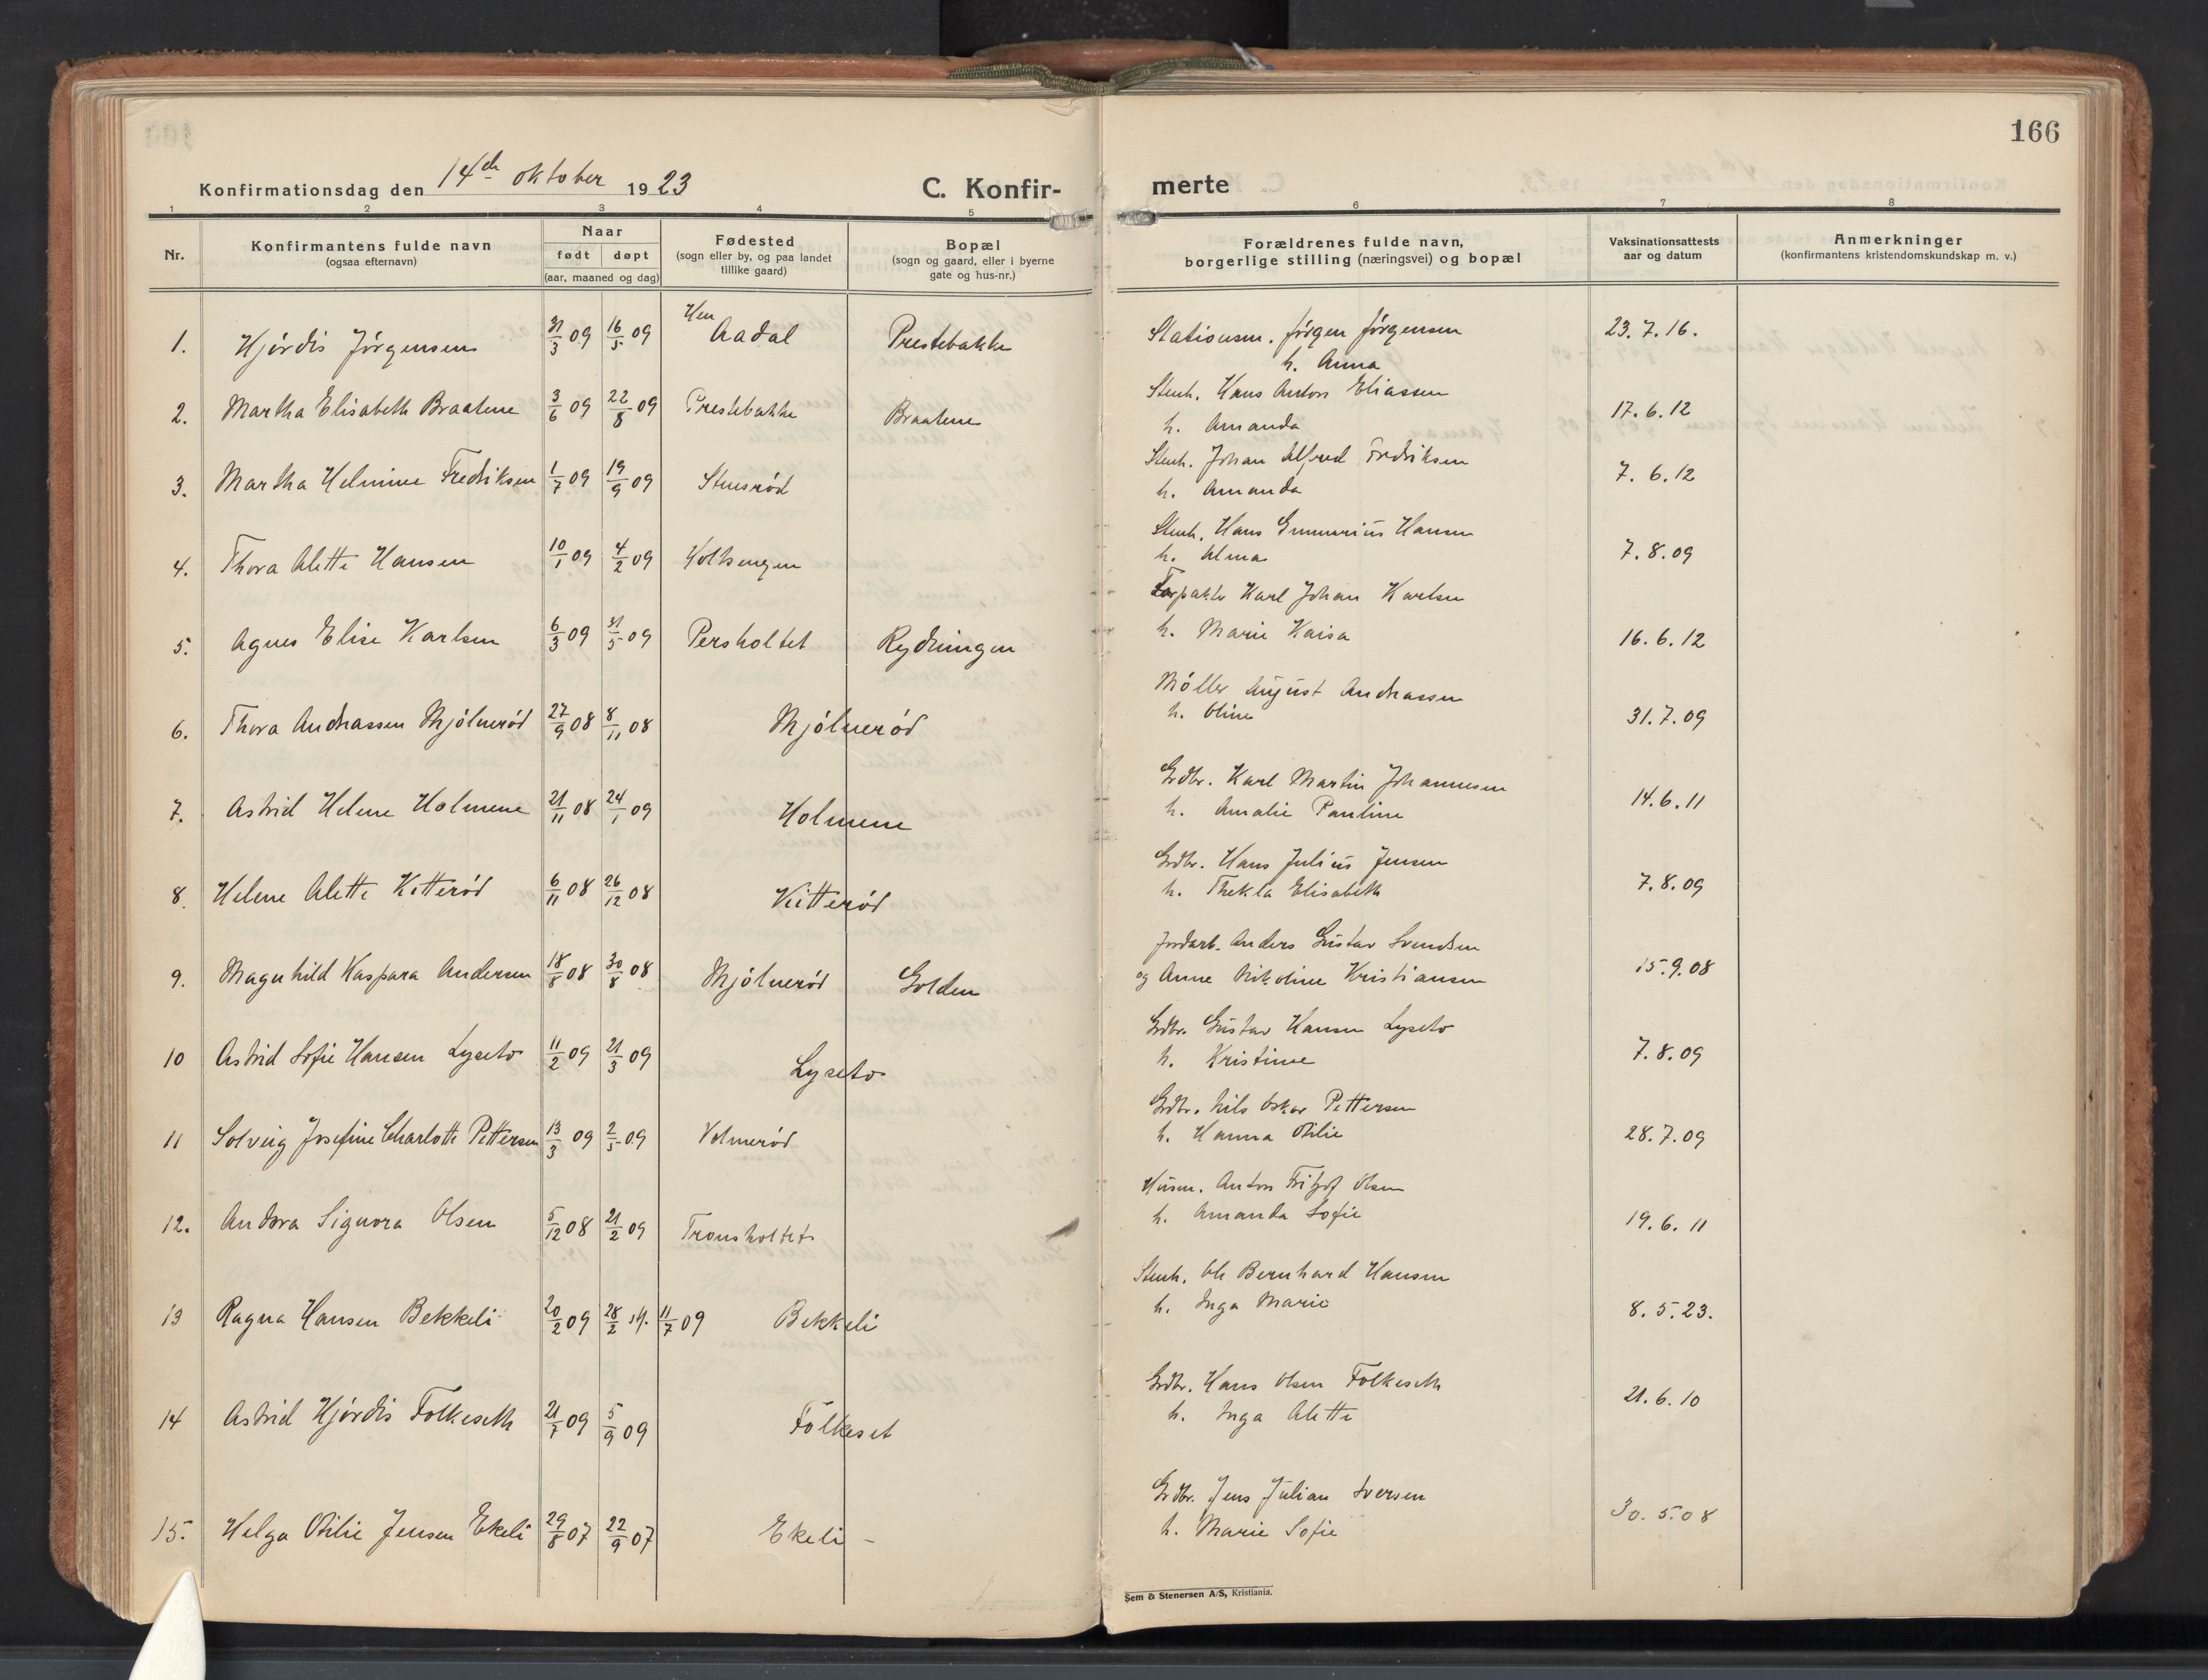 166
Konfirmationsdag den 14de oktober 1923
C. Konfir-
merte
1 2 3 4 5 6 7 8
Nr.
Konfirmantens fulde navn
(ogsaa efternavn)
Naar
født døpt
(aar, maaned og dag)
Fødested
(sogn eller by, og paa landet
tillike gaard)
Bopæl
(sogn og gaard, eller i byerne
gate og hus-nr.)
Forældrenes fulde navn,
borgerlige stilling (næringsvei) og bopæl
Vaksinationsattests
aar og datum
Anmerkninger
(konfirmantens kristendomskundskap m. v.)
1. Hjørdis Jørgensen 31/3 09 16/5 09 Hen Aadal Prestebakke Stationsm. Jørgen Jørgensen 23.7.16.
h. Anna
2. Martha Elisabeth Braatene 3/6 09 22/8 09 Prestebakke Braatene Stenh. Hans Anton Eliassen 17.6.12
h. Amanda
3. Martha Helmine Fredriksen 1/7 09 19/9 09 Stuesrød Stenh. Johan Alfred Fredriksen 7.6.12
h. Amanda
4. Thora Alette Hansen 10/1 09 4/2 09 Holtsengen Stenh. Hans Hansen 7.8.09
h. Alma
5. Agnes Elise Karlsen 6/3 09 31/5 09 Persholtet Rydningen Forpakter Karl Johan Karlsen 16.6.12
h. Marie Kaisa
6. Thora Andreassen Mjølnerød 27/9 08 8/11 08 Mjølnerød Møller August Andreassen 31.7.09
h. Oline
7. Astrid Helene Holmene 21/11 08 24/1 09 Holmene Grdbr. Karl Martin Johannesen 14.6.11
h. Amalie Pauline
8. Helene Alette Kitterød 6/11 08 26/12 08 Kitterød Grdbr. Hans Julius Jensen 7.8.09
h. Thekla Elisabeth
9. Magnhild Kaspara Andersen 18/8 08 30/8 08 Mjølnerød Golden Jordarb. Anders Gustav Svendsen 15.9.08
og Anne Nikoline Kristiansen
10 Astrid Sofie Hansen Lyseto 11/2 09 21/3 09 Lyseto Grdbr. Gustav Hansen Lyseto 7.8.09
h. Kristine
11 Solveig Josefine Charlotte Pettersen 13/3 09 2/5 09 Holmerød Grdbr. Nils Oskar Pettersen 28.7.09
h. Hanna Otilie
12. Andora Signora Olsen 5/12 08 21/2 09 Tronsholtet Husm. Anton Fritjof Olsen 19.6.11
h. Amanda Sofie
13 Ragna Hansen Bekkeli 20/2 09 28/2 st. 11/7 09 Bekkeli Stenh. Ole Bernhard Hansen 8.5.23.
h. Inga Marie
14 Astrid Hjørdis Folkeseth 21/7 09 5/9 09 Folkeset Grdbr. Hans Olsen Folkeseth 21.6.10
h. Inga Alette
15. Helga Otilie Jensen Ekeli 29/8 07 22/9 07 Ekeli – Grdbr. Jens Julian Iversen 30.5.08
h. Marie Sofie
Sem & Stenersen A/S, Kristiania.